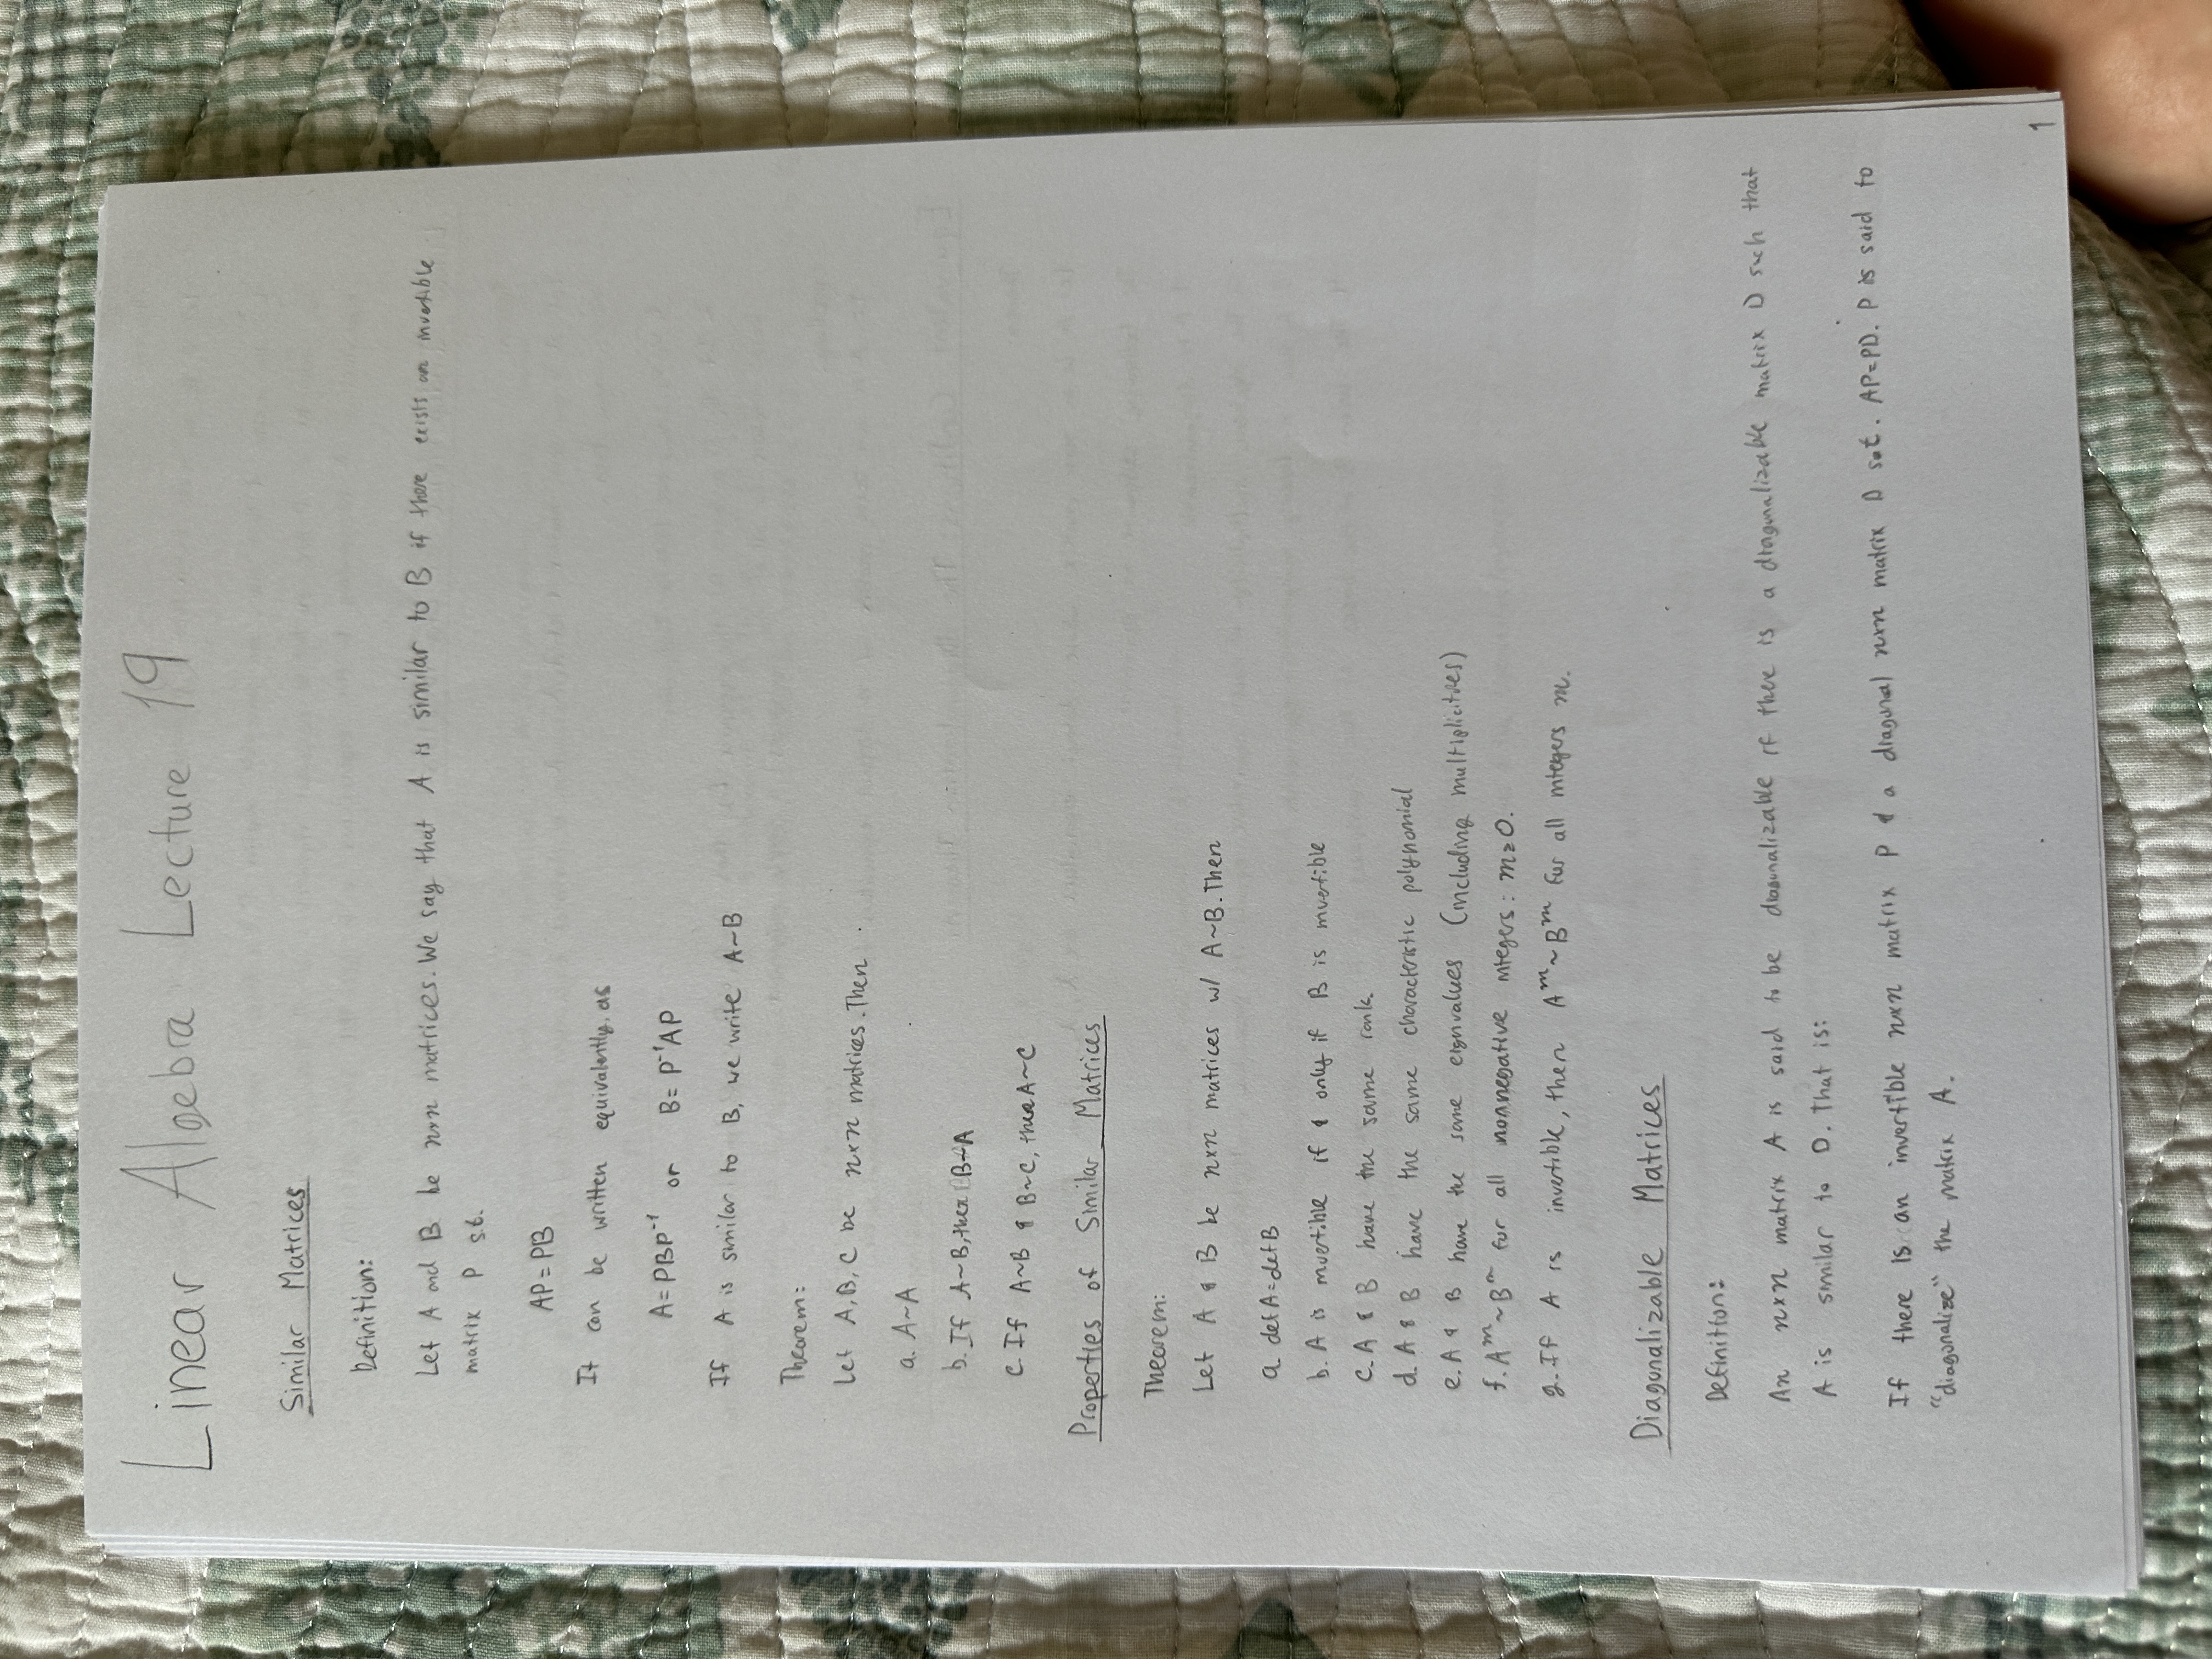 Linear Algebra Lecture 19
Similar Matrices
Definition:
Let A and B be n×n matrices. We say that A is similar to B if there exists an invertible
matrix P s.t.
AP=PB
It can be written equivalently as
A=PBP⁻¹ or B=P⁻¹AP
If A is similar to B, we write A~B
Theorem:
Let A,B,C be n×n matrices. Then
a. A~A
b. If A~B, then B~A
c. If A~B & B~C, then A~C
Properties of Similar Matrices
Theorem:
Let A & B be n×n matrices w/ A~B. Then
a. det A=det B
b. A is invertible if & only if B is invertible
c. A & B have the same rank.
d. A & B have the same characteristic polynomial
e. A & B have the same eignvalues (including multiplicities)
f. Aᵐ~Bᵐ for all nonnegative integers: m≥0.
g. If A is invertible, then Aᵐ~Bᵐ for all integers m.
Diagonalizable Matrices
Definition:
An n×n matrix A is said to be diagonalizable if there is a diagonalizable matrix D such that
A is similar to D. That is:
If there is an invertible n×n matrix P & a diagonal n×n matrix D s.t. AP=PD. P is said to
"diagonalize" the matrix A.
1